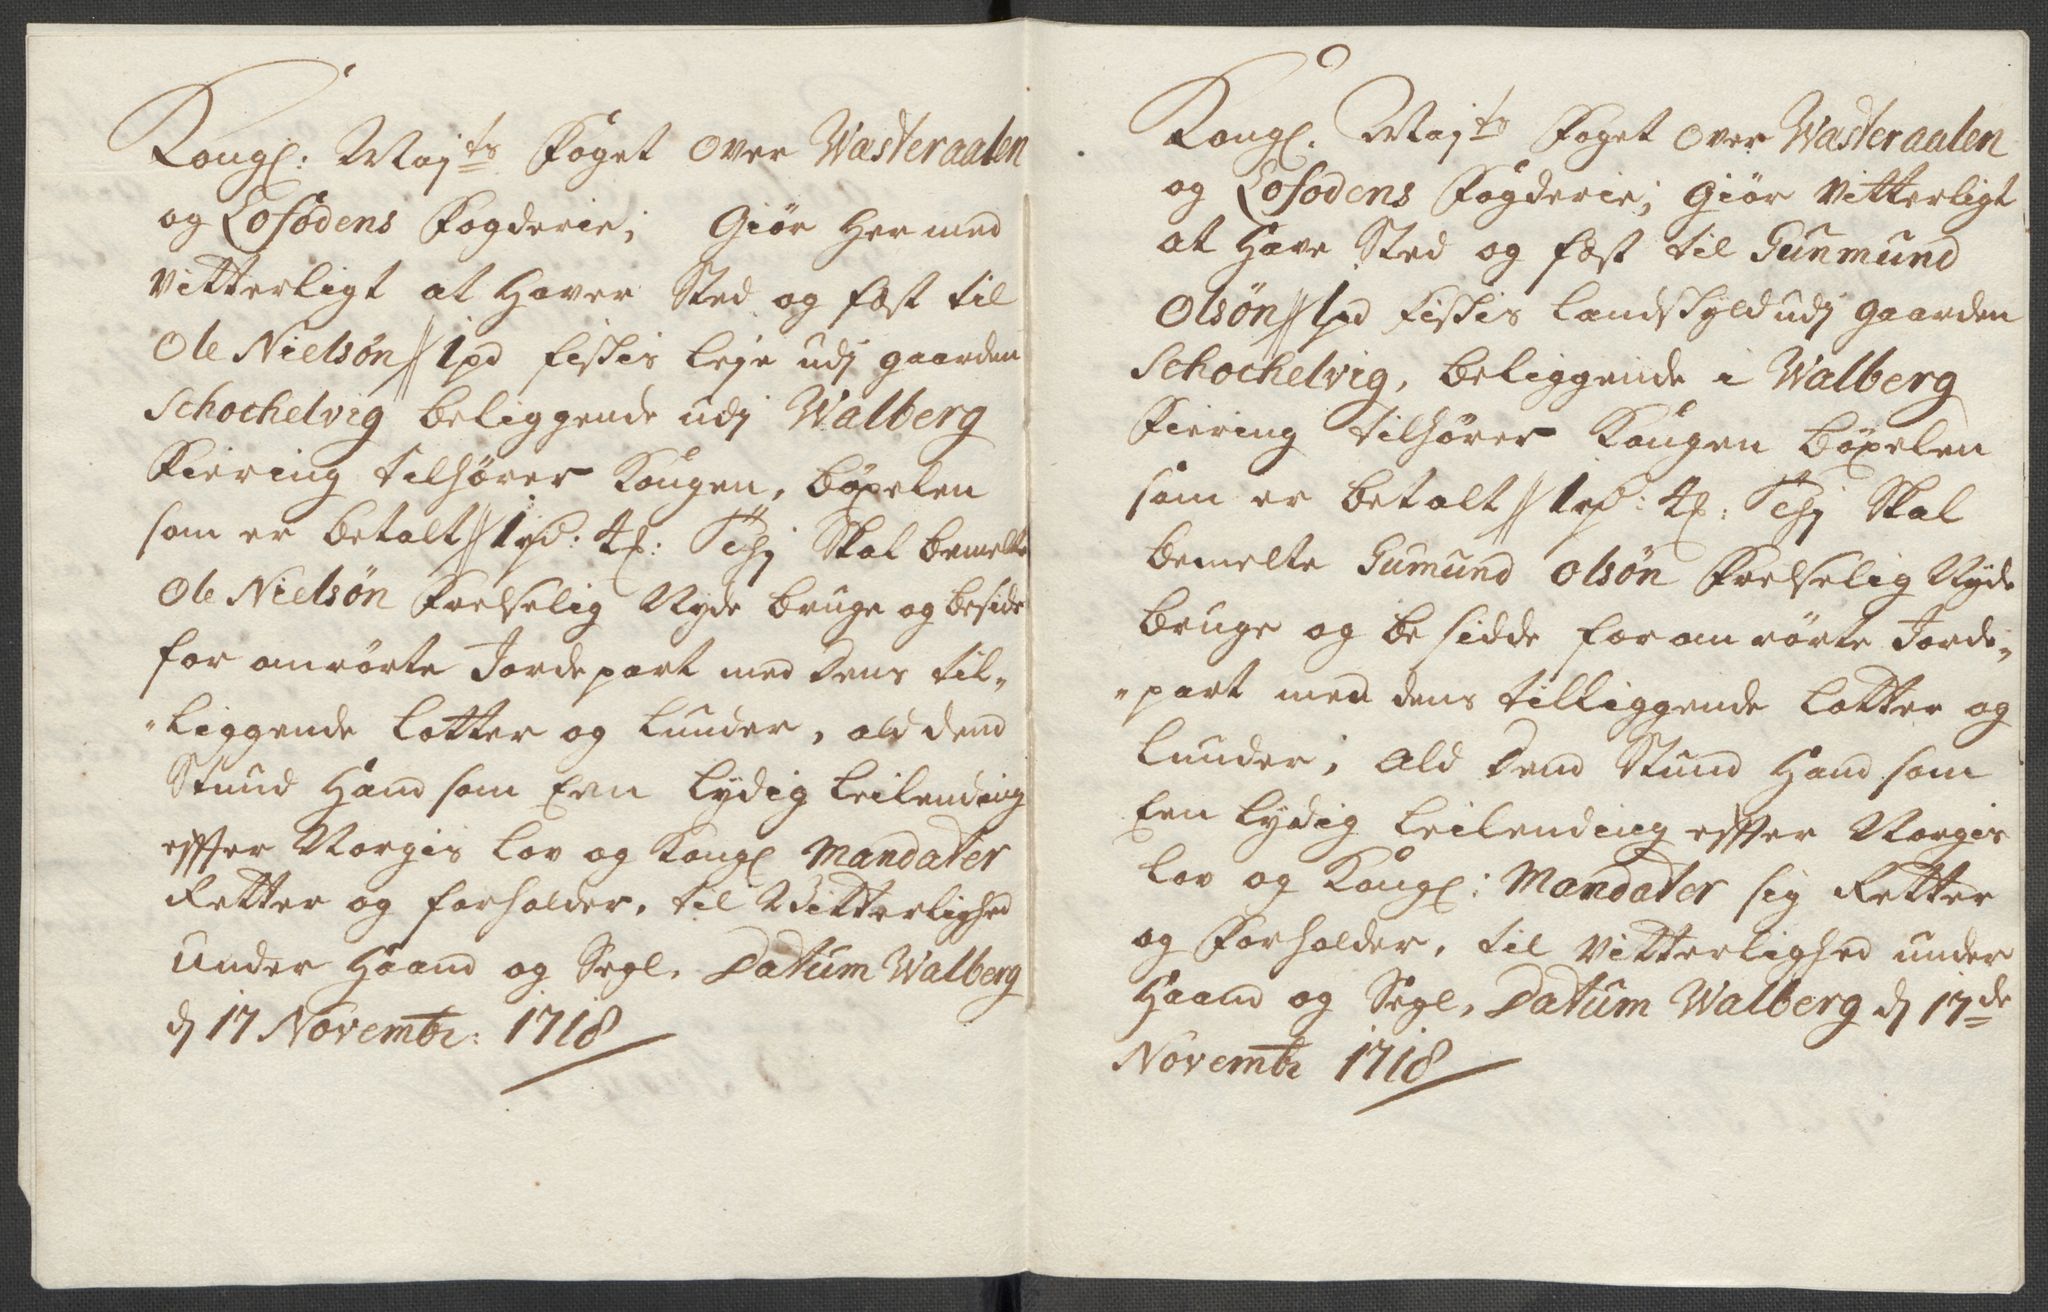 Kongl: Maj:ts Foget over Wasteraalen
og Lofodens Fogderie; Giør Her med
vitterligt at Haver Sted og fæst til
Ole Nielsøn // 1 pd Fiskis leje udj gaarden
Schochelvig beliggende udj Walberg
Fiering tilhører Kongen, böxelen
som er betalt // 1 rd: 4 ß: Thj Skal bemelte
Ole Nielsøn Frelselig Nyde bruge og beside
for anrørte Jordepart med Dens til-
-liggende lotter og lunder, ald dend
Stund Hand som Een lydig leilending
effter Norgis lov og Kongl Mandater
Retter og forholder, til Vitterlighed
under Haand og Segl, Datum Walberg
d 17 Novembr: 1718
Kongl. Maj:ts Foget over Wasteraalen
og Lofodens Fogderie; Giør vitterligt
at Have Sted og fæst til Gunmund
Olsøn // 1 pd Fiskis landskyld udj gaarden
Schochelvig, beliggende i Walberg
Fiering tilhører Kongen böxelen
som er betalt // 1 rd: 4 ß: Thj Skal
bemelte Gumund Olsøn Frelselig Nyde
bruge og besidde for anrørte Jorde-
-part med dens tilliggende lotter og
lunder; Ald Dend Stund Hand som
Een lydig leilending effter Norgis
lov og Kongl: Mandater sig Retter
og Forholder, til Vitterlighed under
Haand og Segl, Datum Walberg d 17de
Novembr 1718